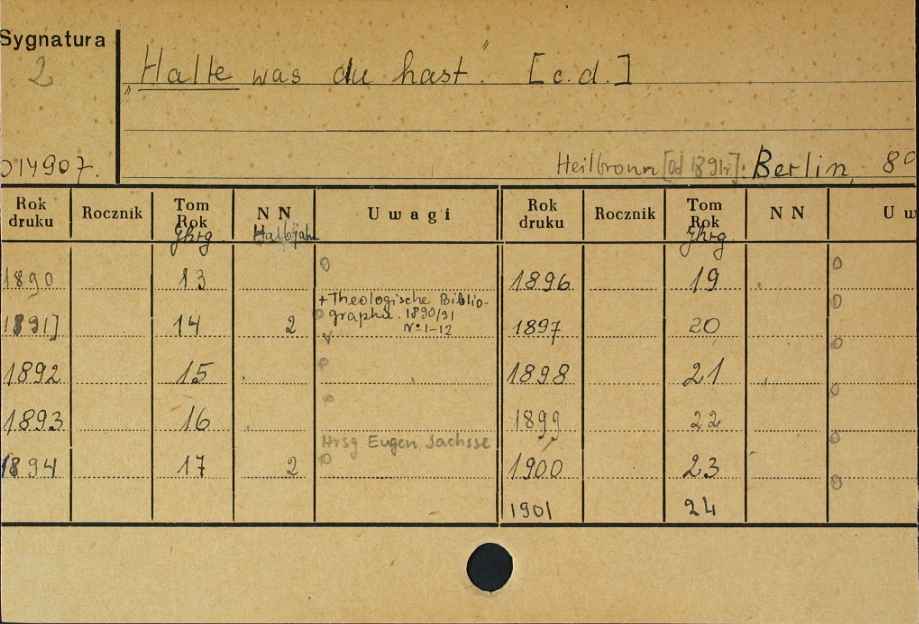 Sygnatura
2
„Halte was du hast." [c.d.]
014907.
Heilbronn [od 1891r]: Berlin, 8°
Rok druku Rocznik Tom Rok Jhrg NN Halbjahr Uwagi Rok druku Rocznik Tom Rok Jhrg NN Uw
1890 13 o 1896 19 o
1891] 14 2 + Theologische Biblio-
graphie. 1890/91
No 1-12 1897 20 o
1892 15 1898 21
1893 16 1899 22
Hrsg Eugen Sachsse
1894 17 2 o 1900 23 o
1901 24